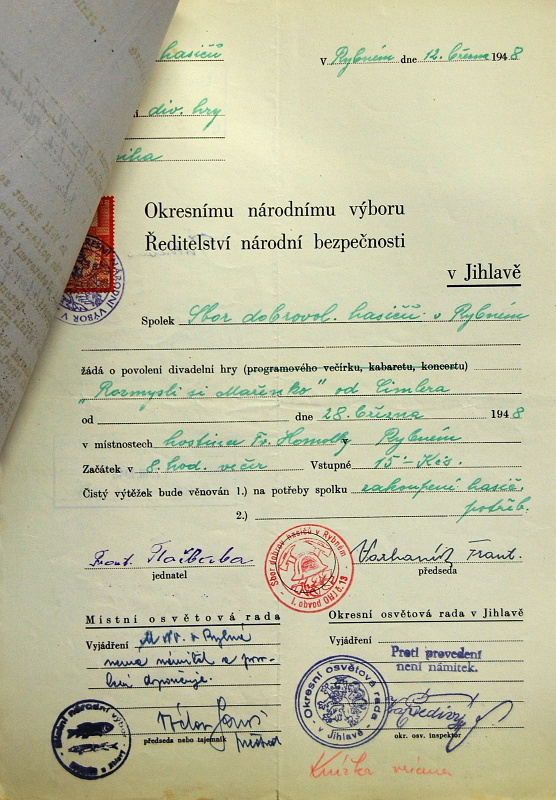 hasičů
V Rybném dne 12. března 1948
div. hry
Okresnímu národnímu výboru
Ředitelství národní bezpečnosti
v Jihlavě
Spolek Sbor dobrovol. hasičů v Rybném
žádá o povolení divadelní hry (programového večírku, kabaretu, koncertu)
"Rozmysli si Mařenko" od Cimlera
od dne 28. března 1948
v místnostech hostince Fr. Homolky Rybném
Začátek v 8. hod. večer Vstupné 15'- Kčs.
Čistý výtěžek bude věnován 1.) na potřeby spolku zakoupení hasič.
potřeb.
2.)
Frant.
jednatel
Frant.
předseda
Sbor dobrov. hasičů v Rybném
I. obvod OHJ č. 13
Místní osvětová rada
Vyjádření MNV. v Rybné
nema námitek a
doporučuje.
předseda nebo tajemník
Místní národní výbor
u Jihlavy
Okresní osvětová rada v Jihlavě
Vyjádření
Proti provedení
není námitek.
Okresní osvětová rada
v Jihlavě
okr. osv. inspektor
Knížka vrácena
NÁRODNÍ VÝBOR V